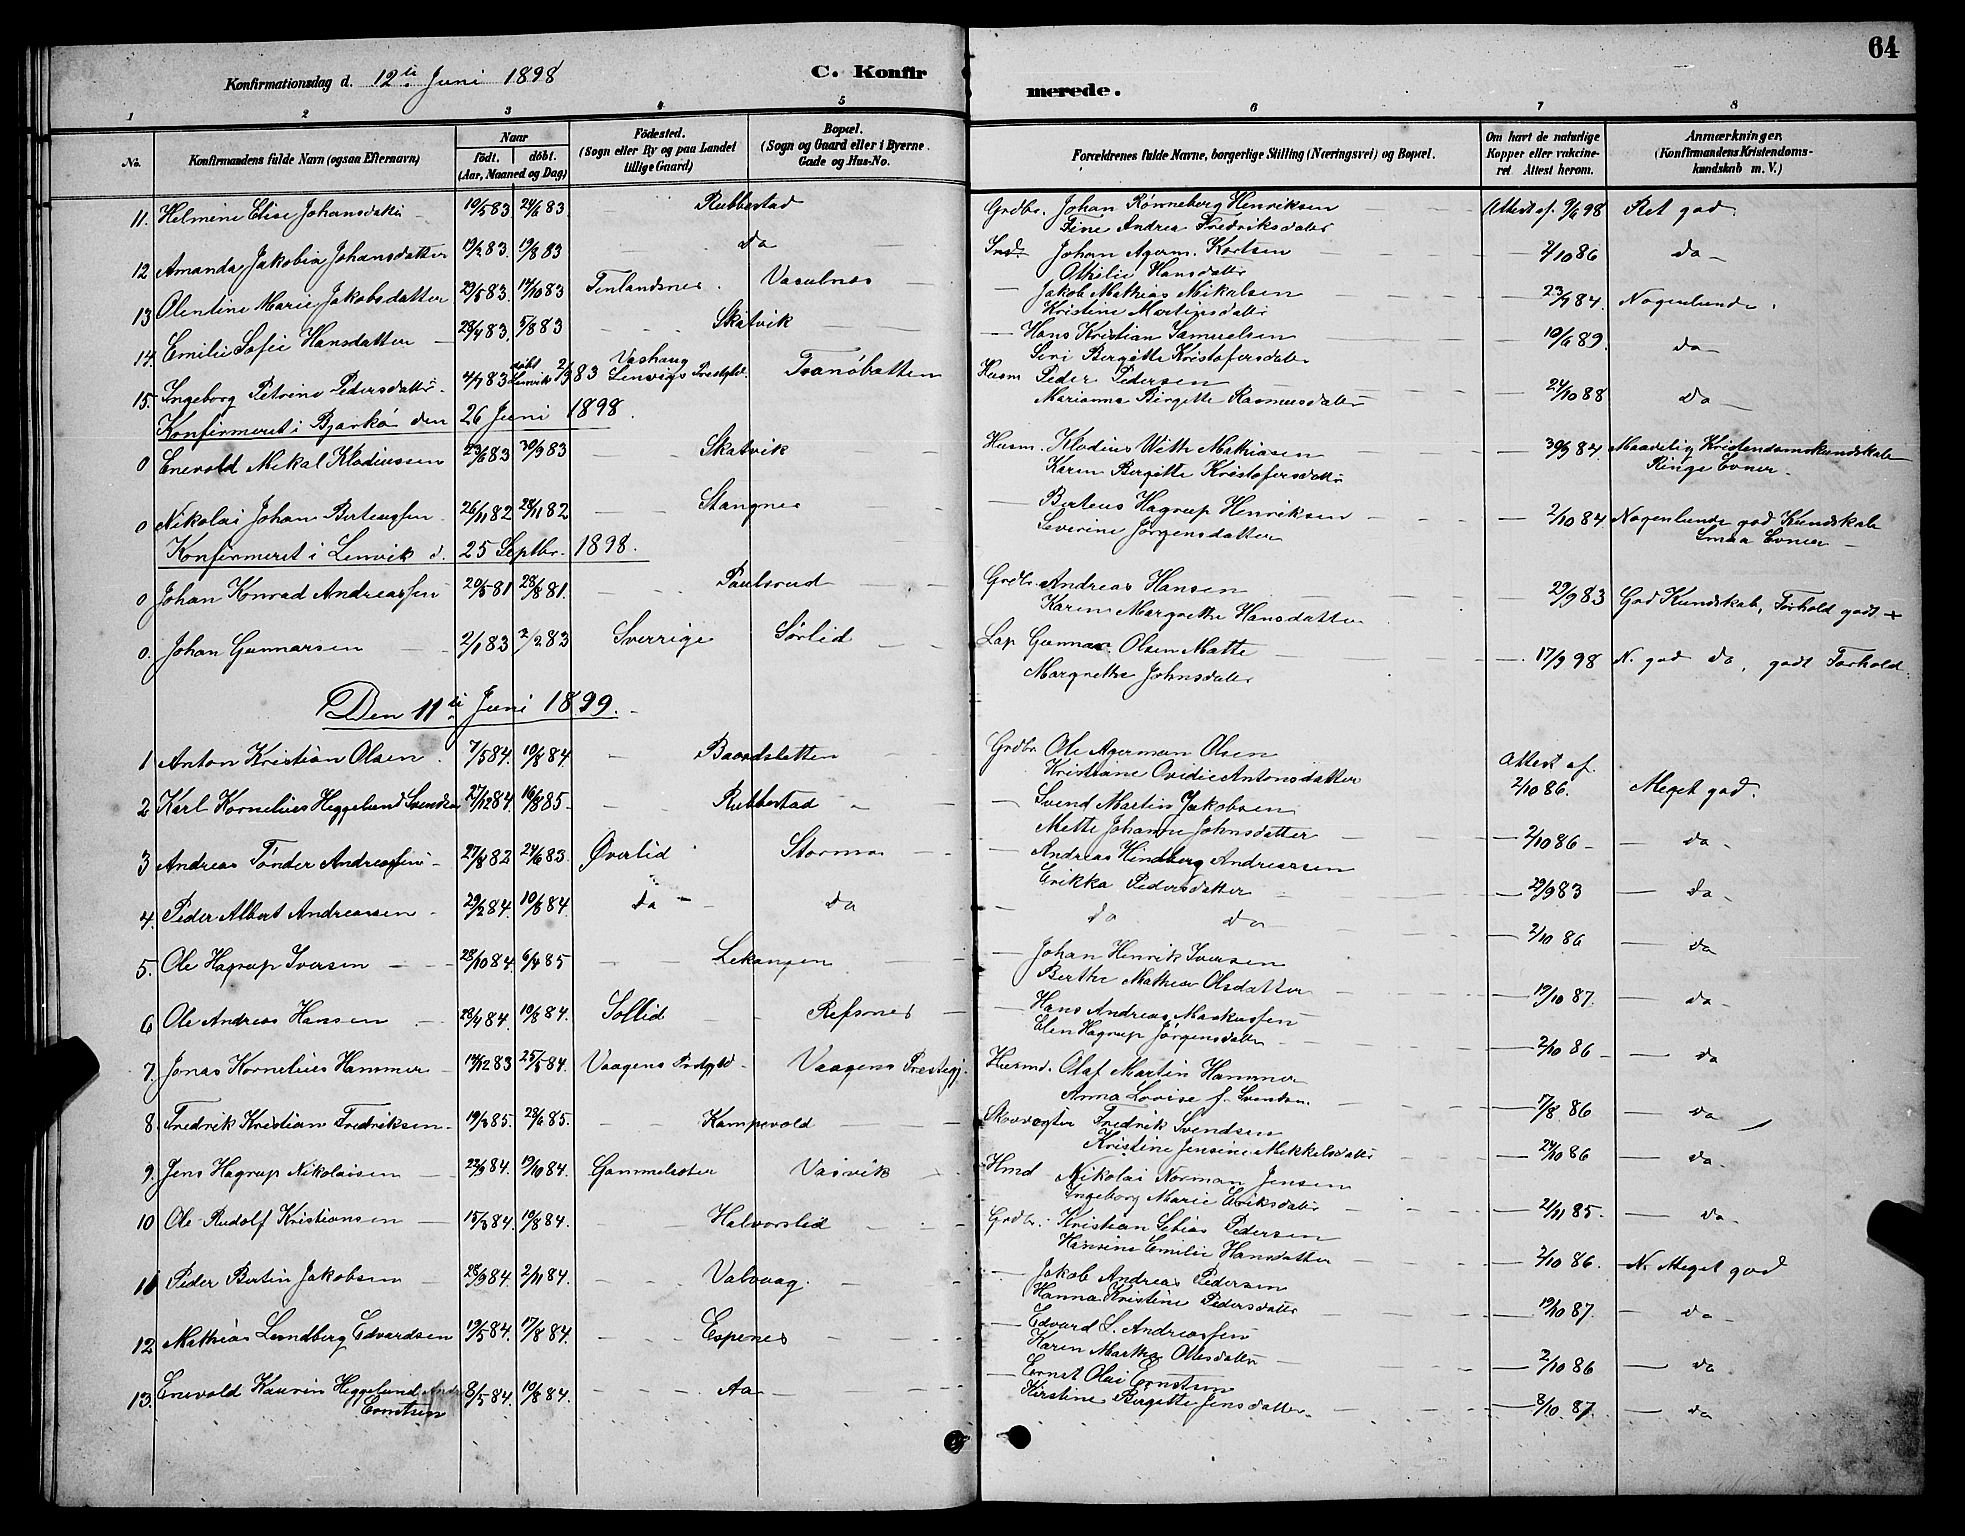 64
Konfirmationsdag d. 12te Juni 1898 C. Konfirmerede.
1 2 3 4 5 6 7 8
No. Konfirmandens fulde Navn (ogsaa Efternavn) Naar født. døbt. (Aar, Maaned og Dag) Fødested. (Sogn eller By og paa Landet tillige Gaard) Bopæl. (Sogn og Gaard eller i Byerne Gade og Hus-No. Forældrenes fulde Navne, borgerlige Stilling (Næringsvei) og Bopæl. Om havt de naturlige Kopper eller vakcineret. Attest herom. Anmærkninger. (Konfirmandens Kristendomskundskab m. V.)
11. Helmine Elise Johansdatter 19/5 83 24/6 83. Rubbestad Grdbr. Johan Rønneberg Henriksen Attest af. 9/6 98 Ret god.
Fine Andrea Fredriksdatter
12 Amanda Jakobia Johansdatter 19/2 83. 19/8 83 do Johan Agerm. Kortsen 2/10 86 do
Othelie Hansdatter
13 Olentine Marie Jakobsdatter 29/5 83. 14/10 83 Finlandsnes. Vasulnes Jakob Mathias Mikalsen 23/9 84. Nogenlunde.
Kristine Martinsdatter
14. Emilie Sofie Hansdatter 28/4 83. 5/8 83 Skatvik Hans Kristian Samuelsen 10/6 89. do
Seri Bergitte Kristofersdatter
15. Ingeborg Petrine Pedersdatter. 4/7 83 døbt Lenvik 2/9 83 Vashaug Lenvigs Prestgld. Tranøbotten Husm Peder Pedersen 24/10 88 do
Marianna Birgitte Rasmusdatter
Konfirmeret i Bjarkø den 26 Juni 1898.
0 Enevold Mikal Klodiussen 23/6 83 30/9 83 Skatvik Husm. Klodius With Mathiasen 30/9 84. Maadelig Kristendomskundskab
Karen Bergitte Kristofersdatter Ringe Evner.
0 Nikolai Johan Berteussen 26/11 82 28/11 82 Stangnes Berteus Hagrup Henriksen 2/10 84 Nogenlunde god Kundskab
Severine Jørgensdatter Smaa Evner
Konfirmeret i Lenvik d. 25 Septbr. 1898.
0 Johan Konrad Andreassen 20/5 81 28/8 81. Paulsrud Grdbr. Andreas Hansen 29/9 83 God Kundskab, Forhold godt +
Karen Margrethe Hansdatter
0. Johan Gunnarsen 2/1 83 2/2 83 Sverrige Sørlid Lap Gunnar Olsen Matte 17/9 98 N. god do, godt Forhold.
Margrethe Johnsdatter
Den 11te Juni 1899.
1 Anton Kristian Olsen. 7/5 84. 10/8 84 Baardsletten Grdbr. Ole Agerman Olsen Attest af. 2/10 86. Meget god.
Kristiane Ovidie Antonsdatter
2 Karl Kornelius Heggelund Svendsen 27/12 84. 16/8 85 Rubbestad Svend Martin Jakobsen 2/10 86 do
Mette Johanne Johnsdatter
3 Andreas Tønder Andreassen 27/8 82 24/6 83. Øverlid Stormo Andreas Hindberg Andreassen 29/9 83 do
Erikka Pedersdatter
4. Peder Albert Andreassen 29/2 84. 10/8 84. do do do do 2/10 86 do
5. Ole Hagrup Iversen 28/10 84. 6/4 85 Lekangen Johan Henrik Iversen 19/10 87. do
Berthe Mathea Olsdatter
6 Ole Andreas Hansen 28/4 84. 10/8 84. Sollid Refsnes Hans Andreas Markussen 2/10 86 do
Elen Hagrup Jørgensdatter
7. Jonas Kornelius Hammer 14/12 83 25/5 84. Vaagens Prstgld. Vaagens Prestegj. Husmd. Olaf Martin Hammer 7/8 86 do
Anna Lovise f. Svendsen.
8 Fredrik Kristian Fredriksen 19/3 85. 28/6 85. Kampevold Skovvogter Fredrik Svendsen 24/10 86 do
Kristine Jensine Mekkelsdatter
9. Jens Hagrup Nikolaisen 22/9 84. 19/10 84. Gammelseter Vasvik Hmd Nikolai Norman Jensen 2/11 85. do
Ingeborg Marie Eriksdatter
10 Ole Rudolf Kristiansen 15/3 84. 10/8 84. Halvorslid Grdbr. Kristian Sebias Pedersen 2/10 86. N. Meget god
Hansine Emilie Hansdatter
11 Peder Bertin Jakobsen 28/9 84. 2/11 84. Valvaag. Jakob Andreas Pedersen 19/10 87. do
Hanna Kristine Pedersdatter
12 Mathias Lundberg Edvardsen 19/5 84. 17/8 84. Espenes Edvard L. Andreassen 2/10 86 do
Karen Martha Olsdatter
13. Enevold Kaurin Heggelund 8/5 84. 10/8 84. Aa Ernst Olai Erntsen 8/10 87. do
Erntsen Kirstine Birgitte Jensdatter.